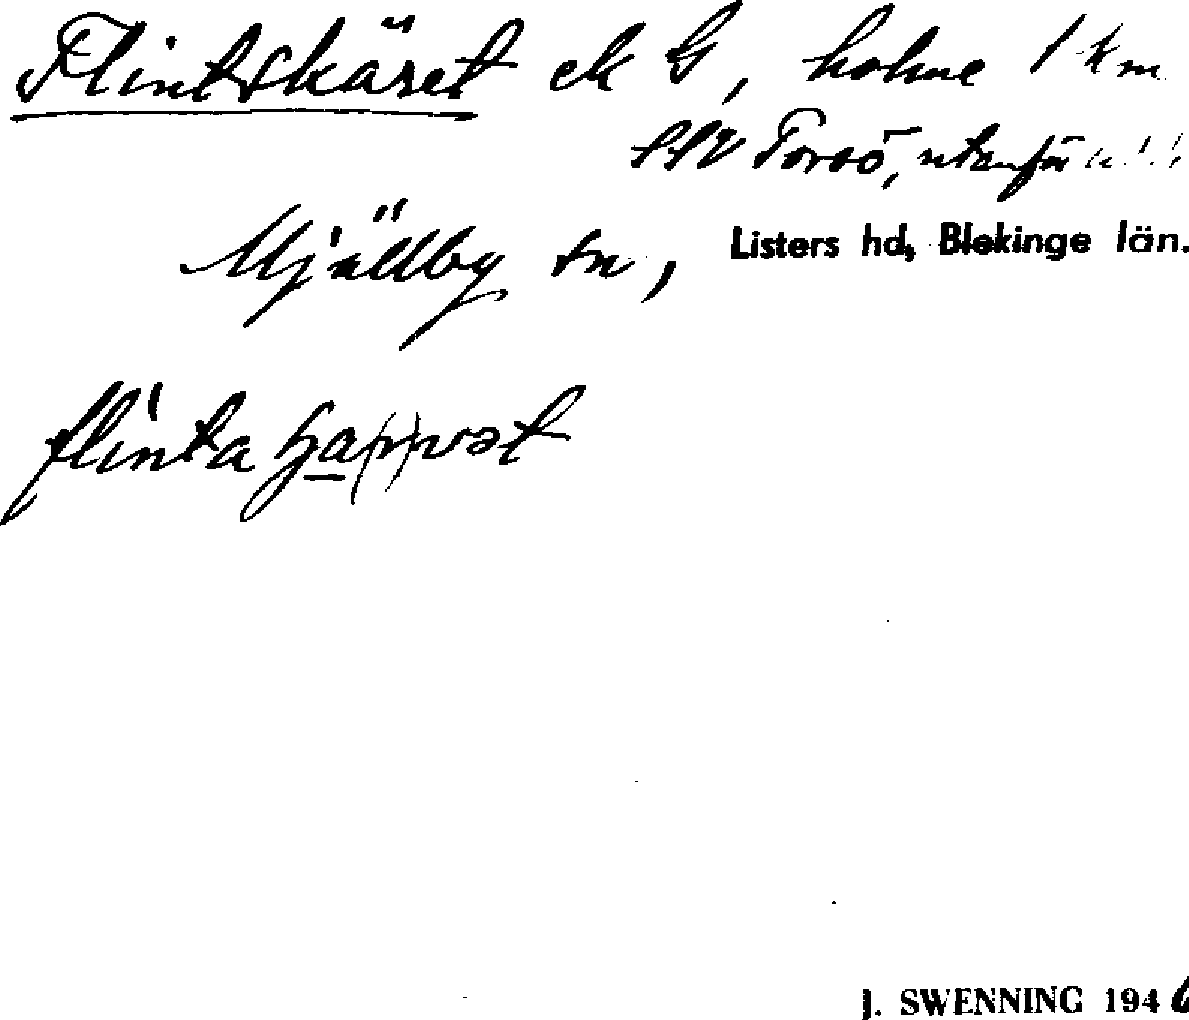 Flintskäret ek G, holme 1 km
SSV Torsö, utanför
Mjällby sn, Listers hd, Blekinge län.
flinta
J. SWENNING 1946